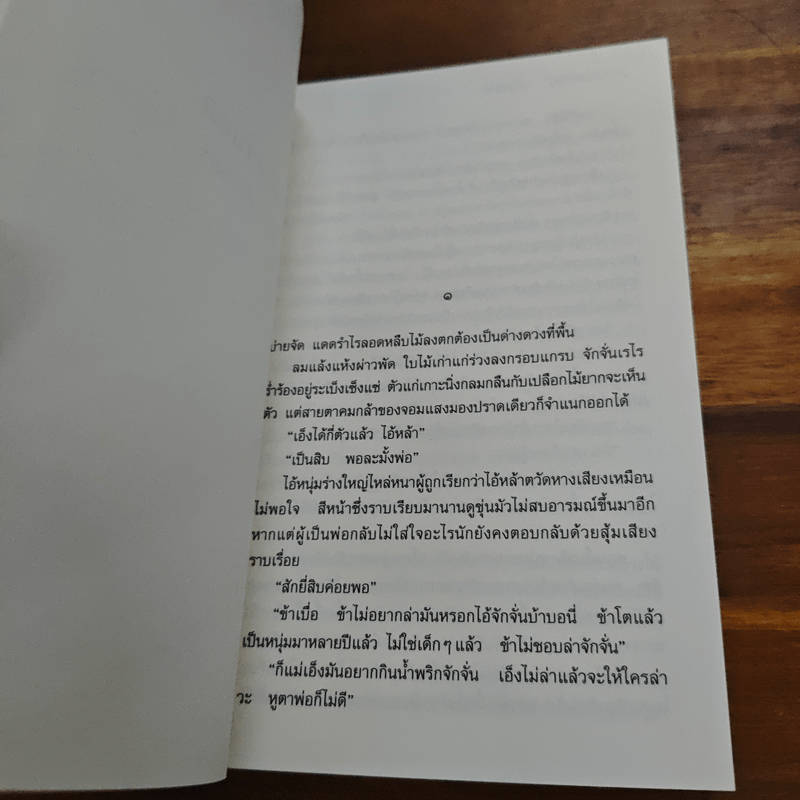 ๑
บ่ายจัด แดดรำไรลอดหลืบไม้ลงตกต้องเป็นด่างดวงที่พื้น
ลมแล้งแห้งผ่าวพัด ใบไม้เก่าแก่ร่วงลงกรอบแกรบ จักจั่นเรไร
ร่ำร้องอยู่ระเบ็งเซ็งแซ่ ตัวแก่เกาะนิ่งกลมกลืนกับเปลือกไม้ยากจะเห็น
ตัว แต่สายตาคมกล้าของจอมแสงมองปราดเดียวก็จำแนกออกได้
“เอ็งได้กี่ตัวแล้ว ไอ้หล้า”
“เป็นสิบ พอละมั้งพ่อ”
ไอ้หนุ่มร่างใหญ่ไหล่หนาผู้ถูกเรียกว่าไอ้หล้าตวัดหางเสียงเหมือน
ไม่พอใจ สีหน้าซึ่งราบเรียบมานานดูขุ่นมัวไม่สบอารมณ์ขึ้นมาอีก
หากแต่ผู้เป็นพ่อกลับไม่ใส่ใจอะไรนักยังคงตอบกลับด้วยสุ้มเสียง
ราบเรื่อย
“สักยี่สิบค่อยพอ”
“ข้าเบื่อ ข้าไม่อยากล่ามันหรอกไอ้จักจั่นบ้าบอนี่ ข้าโตแล้ว
เป็นหนุ่มมาหลายปีแล้ว ไม่ใช่เด็กๆ แล้ว ข้าไม่ชอบล่าจักจั่น”
“ก็แม่เอ็งมันอยากกินน้ำพริกจักจั่น เอ็งไม่ล่าแล้วจะให้ใครล่า
วะ หูตาพ่อก็ไม่ดี”